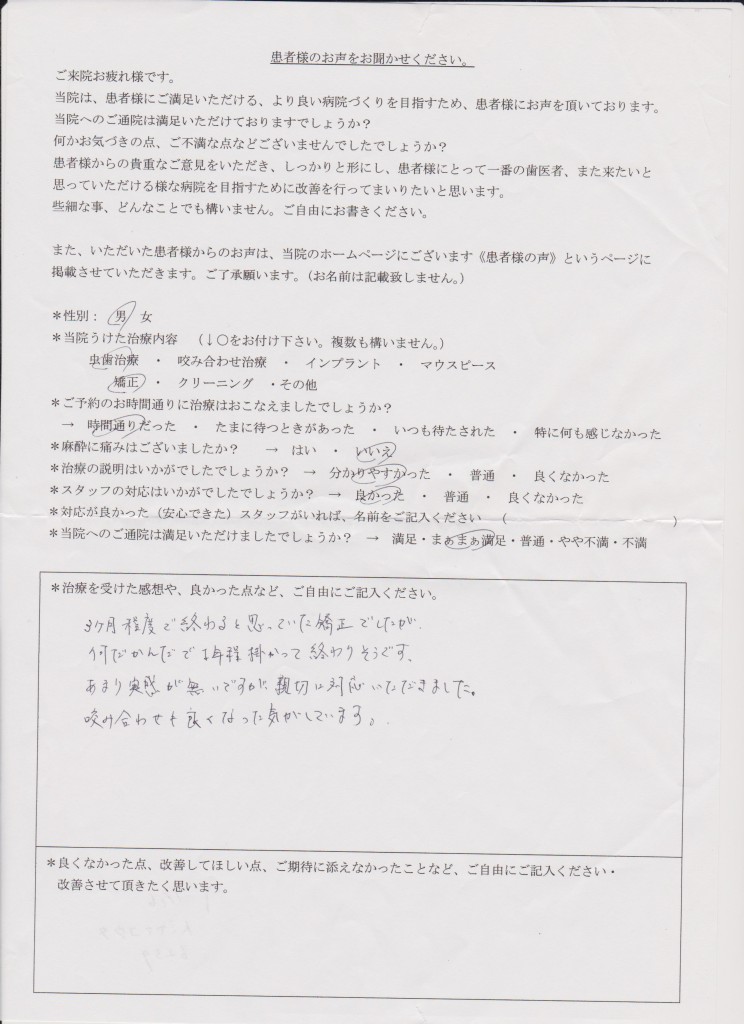 患者様のお声をお聞かせください。
ご来院お疲れ様です。
当院は、患者様にご満足いただける、より良い病院づくりを目指すため、患者様にお声を頂いております。
当院へのご通院は満足いただけておりますでしょうか？
何かお気づきの点、ご不満な点などございませんでしたでしょうか？
患者様からの貴重なご意見をいただき、しっかりと形にし、患者様にとって一番の歯医者、また来たいと
思っていただける様な病院を目指すために改善を行ってまいりたいと思います。
些細な事、どんなことでも構いません。ご自由にお書きください。
また、いただいた患者様からのお声は、当院のホームページにございます《患者様の声》というページに
掲載させていただきます。ご了承願います。（お名前は記載致しません。）
＊性別： 男 女
＊当院うけた治療内容 （↓○をお付け下さい。複数も構いません。）
虫歯治療 ・ 咬み合わせ治療 ・ インプラント ・ マウスピース
矯正 ・ クリーニング ・その他
＊ご予約のお時間通りに治療はおこなえましたでしょうか？
→ 時間通りだった ・ たまに待つときがあった ・ いつも待たされた ・ 特に何も感じなかった
＊麻酔に痛みはございましたか？ → はい ・ いいえ
＊治療の説明はいかがでしたでしょうか？ → 分かりやすかった ・ 普通 ・ 良くなかった
＊スタッフの対応はいかがでしたでしょうか？ → 良かった ・ 普通 ・ 良くなかった
＊対応が良かった（安心できた）スタッフがいれば、名前をご記入ください （ ）
＊当院へのご通院は満足いただけましたでしょうか？ → 満足・まぁまぁ満足・普通・やや不満・不満
＊治療を受けた感想や、良かった点など、ご自由にご記入ください。
3ヶ月程度で終わると思っていた矯正でしたが、
何だかんだで 年程掛かって終わりそうです、
あまり実感が無いですが、親切に対応いただきました。
咬み合わせも良くなった気がしています。
＊良くなかった点、改善してほしい点、ご期待に添えなかったことなど、ご自由にご記入ください・
改善させて頂きたく思います。